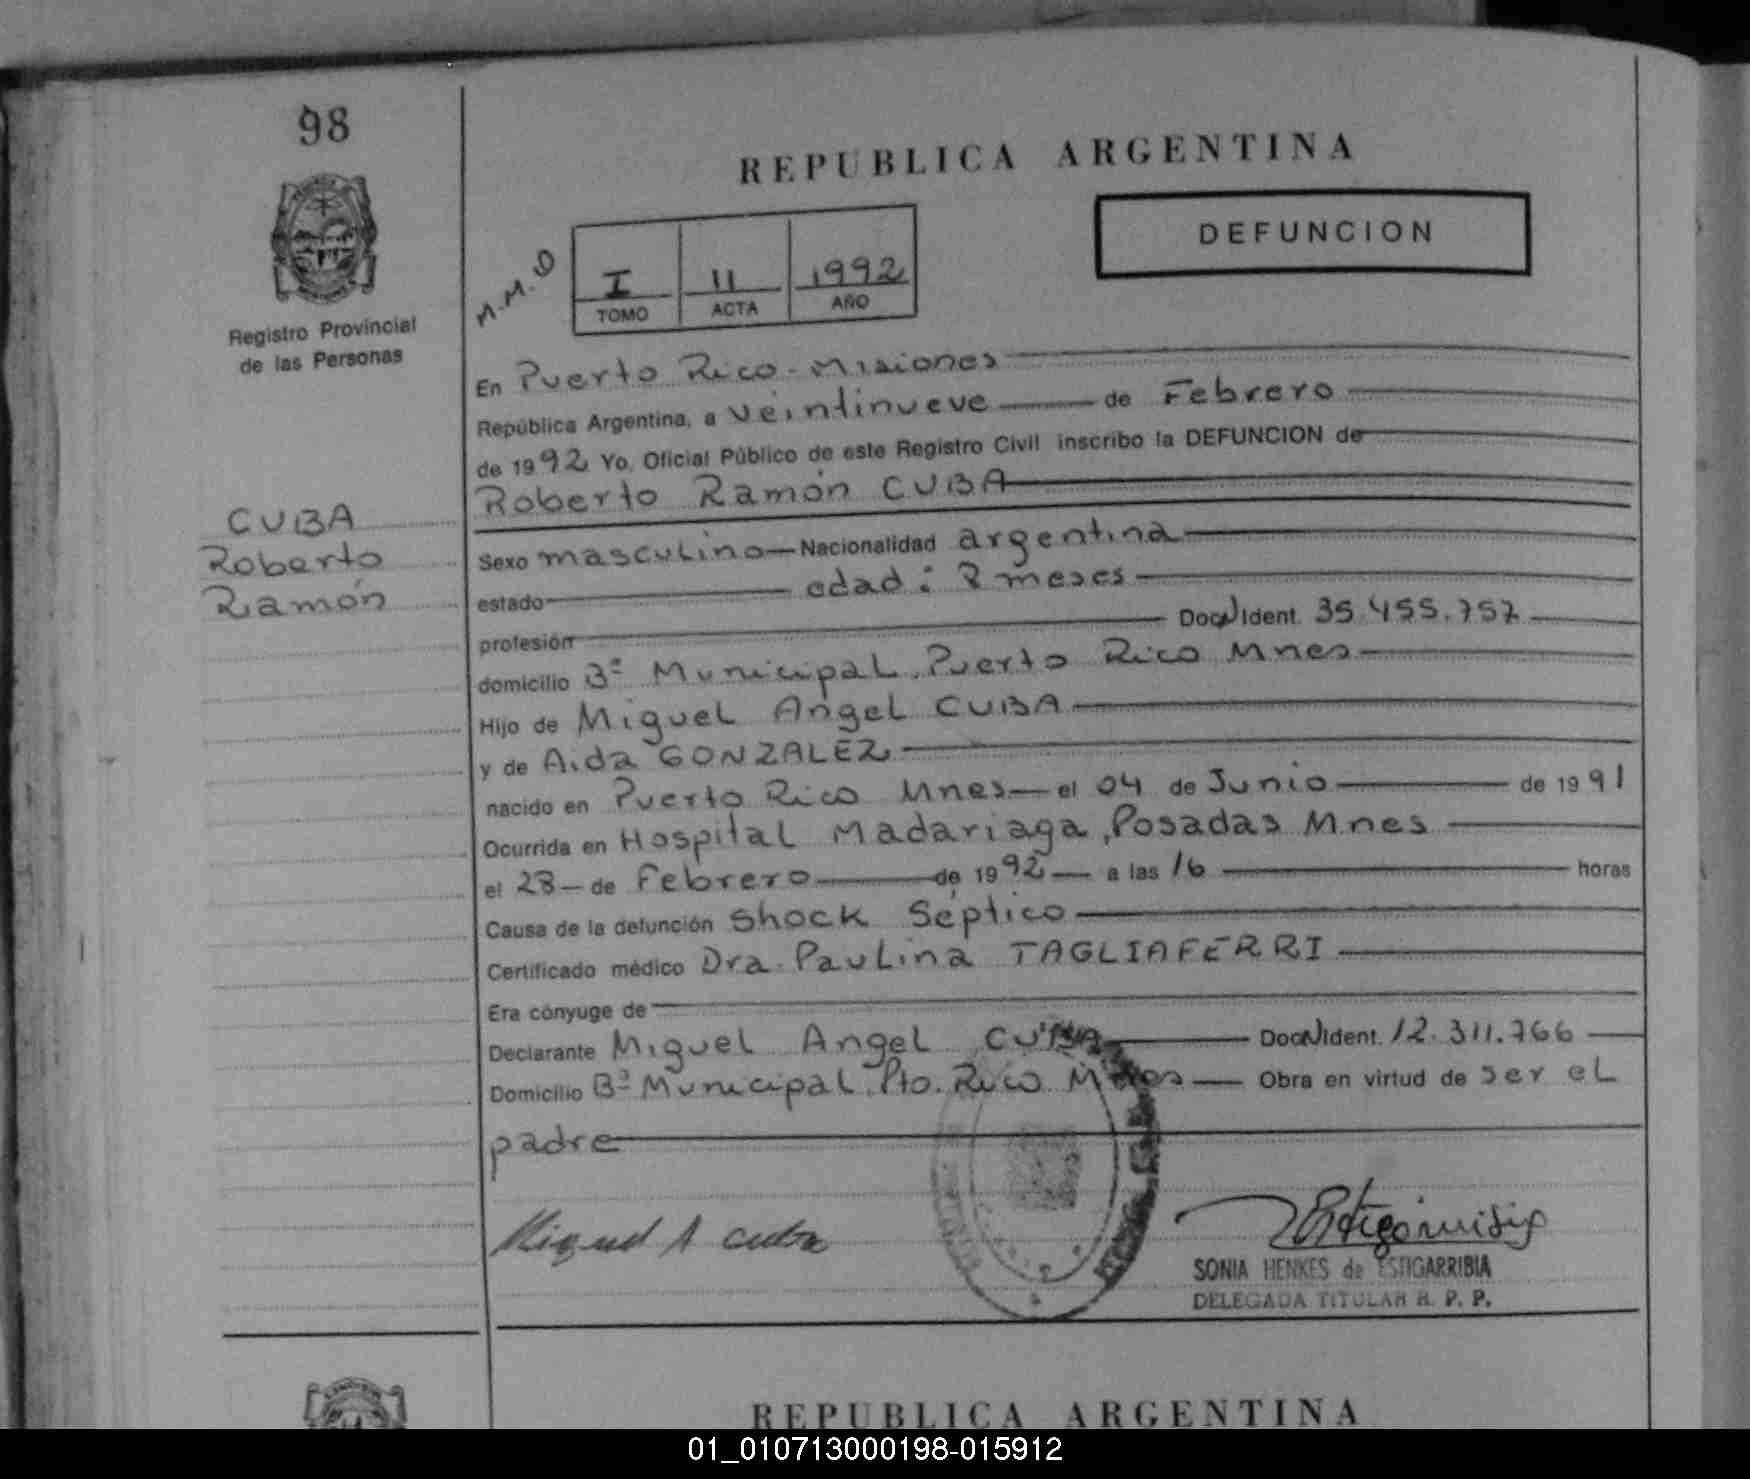 98
REPUBLICA ARGENTINA
DEFUNCION
M.M.D
I 11 1992
TOMO ACTA AÑO
Registro Provincial
de las Personas
En Puerto Rico - Misiones
República Argentina, a veintinueve de Febrero
de 1992 Yo, Oficial Público de este Registro Civil inscribo la DEFUNCION de
Roberto Ramón CUBA
CUBA
Roberto
Ramón
Sexo masculino Nacionalidad argentina
estado edad: 8 meses
profesión Doc. Ident. 35.455.757
domicilio Bº Municipal, Puerto Rico Mnes
Hijo de Miguel Angel CUBA
y de Aida GONZALEZ
nacido en Puerto Rico Mnes el 04 de Junio de 1991
Ocurrida en Hospital Madariaga, Posadas Mnes
el 28 de Febrero de 1992 a las 16 horas
Causa de la defunción Shock Séptico
Certificado médico Dra. Paulina TAGLIAFERRI
Era cónyuge de
Declarante Miguel Angel CUBA Doc. Ident. 12.311.766
Domicilio Bº Municipal, Pto. Rico Mnes Obra en virtud de ser el
padre
Miguel A cuba
SONIA HENKES de ESTIGARRIBIA
DELEGADA TITULAR R. P. P.
REPUBLICA ARGENTINA
01_010713000198-015912